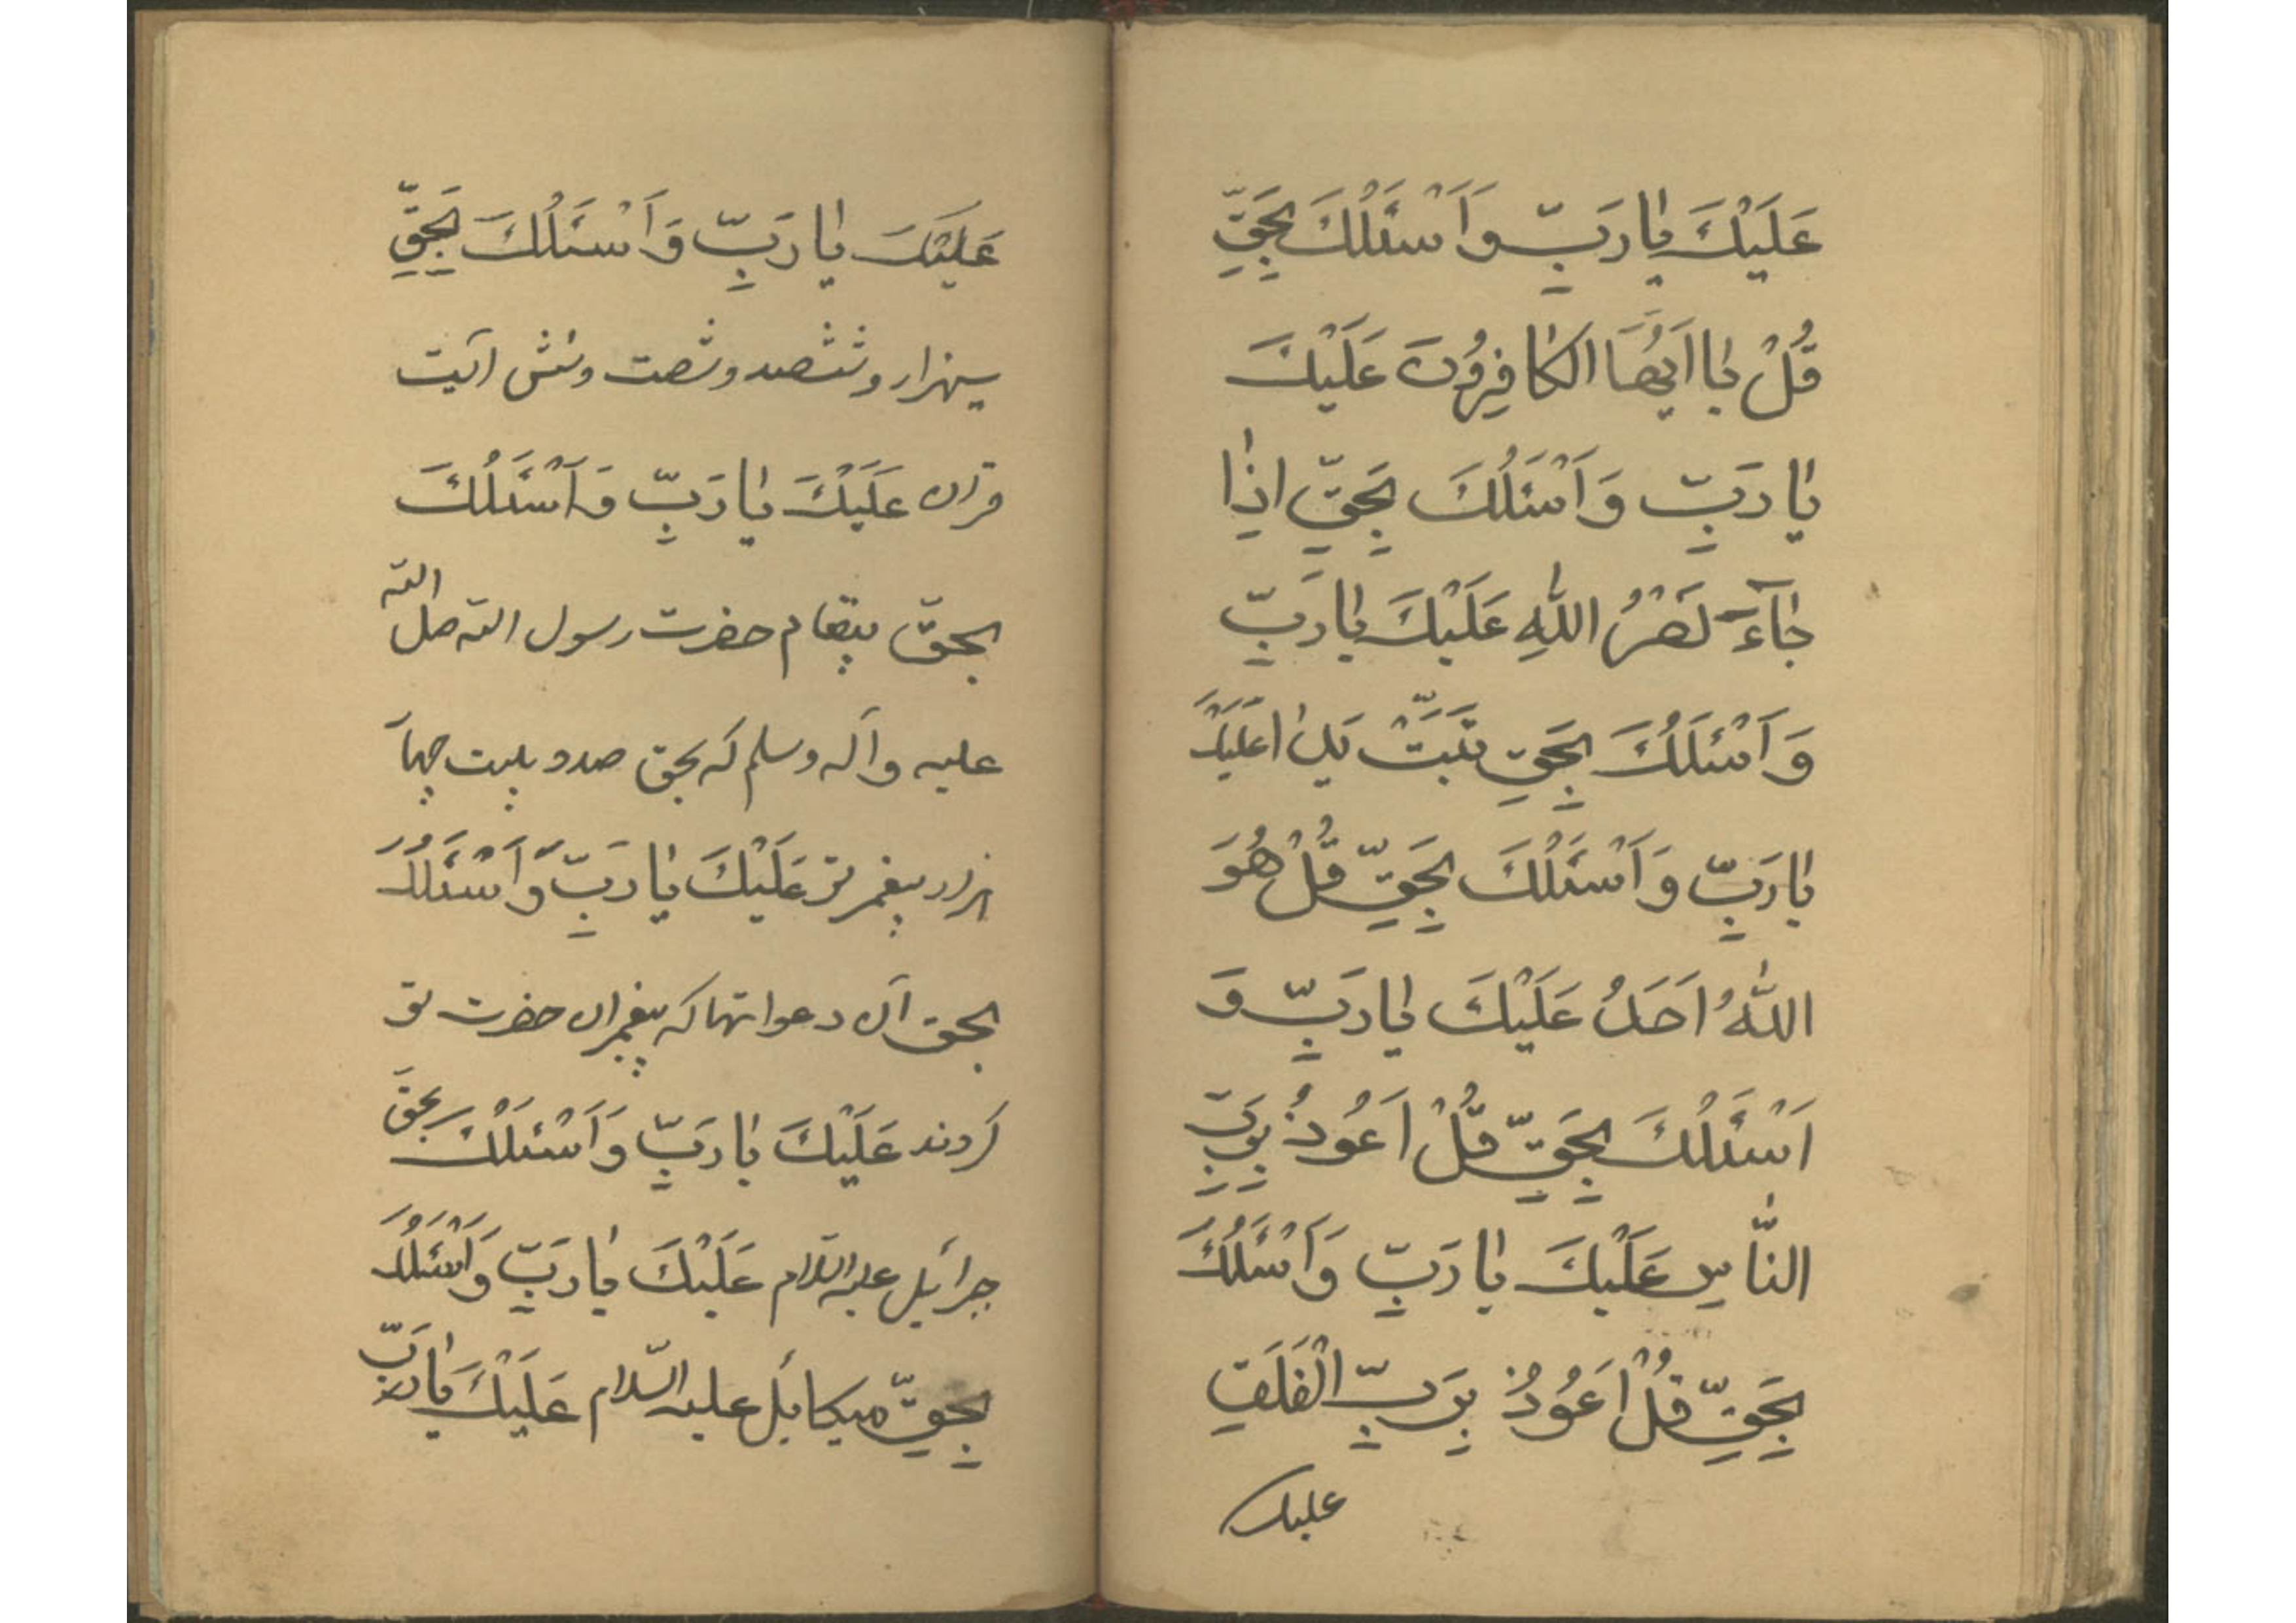 عَلَيْكَ يٰا رَبِّ وَ اَسْئَلُكَ بِحَقِّ
قُلْ يٰا اَيُّهَا الْكٰافِرُونَ عَلَيْكَ
يٰا رَبِّ وَ اَسْئَلُكَ بِحَقِّ اِذٰا
جٰآءَ نَصْرُ اللّٰهِ عَلَيْكَ يٰا رَبِّ
وَ اَسْئَلُكَ بِحَقِّ تَبَّتْ يَدٰا عَلَيْكَ
يٰا رَبِّ وَ اَسْئَلُكَ بِحَقِّ قُلْ هُوَ
اللّٰهُ اَحَدٌ عَلَيْكَ يٰا رَبِّ وَ
اَسْئَلُكَ بِحَقِّ قُلْ اَعُوذُ بِرَبِّ
النّٰاسِ عَلَيْكَ يٰا رَبِّ وَ اَسْئَلُكَ
بِحَقِّ قُلْ اَعُوذُ بِرَبِّ الْفَلَقِ
عليك
عَلَيْكَ يٰا رَبِّ وَ اَسْئَلُكَ بِحَقِّ
سيهزار و ششصد و شصت و شش آيت
قران عَلَيْكَ يٰا رَبِّ وَ اَسْئَلُكَ
بحقّ پيغام حضرت رسول الله صلى الله
عليه و آله وسلم كه بحق صد و بيست چهار
هزار پيغمبر تو عَلَيْكَ يٰا رَبِّ وَ اَسْئَلُكَ
بحق آن دعواتها كه پيغمبران حضرت تو
كردند عَلَيْكَ يٰا رَبِّ وَ اَسْئَلُكَ بحق
جبرائيل عليه السلام عَلَيْكَ يٰا رَبِّ وَ اَسْئَلُكَ
بِحَقِّ ميكائيل عليه السّلام عَلَيْكَ يٰا رَبِّ